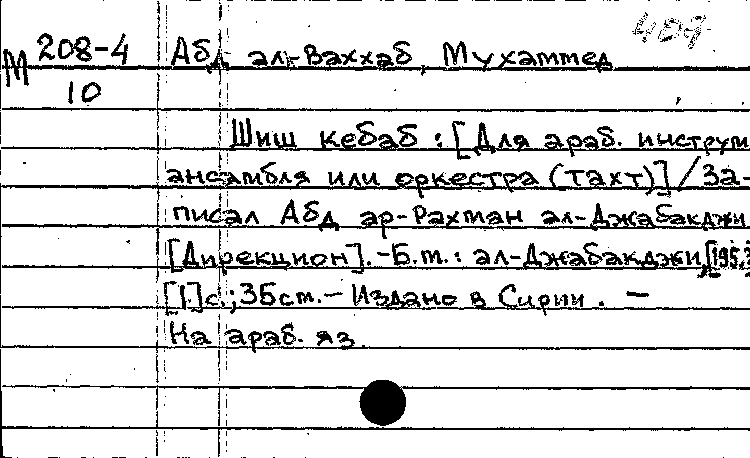 М 208-4
10
Абд ал-Ваххаб, Мухаммед
Шиш кебаб : [Для араб. инструм
ансамбля или оркестра (тахт)] / За-
писал Абд ар-Рахман ал-Джабакджи.
[Дирекцион]. - Б.т. : ал-Джабакджи,
[1.]с.; 35см. - Издано в Сирии. -
На араб. яз.